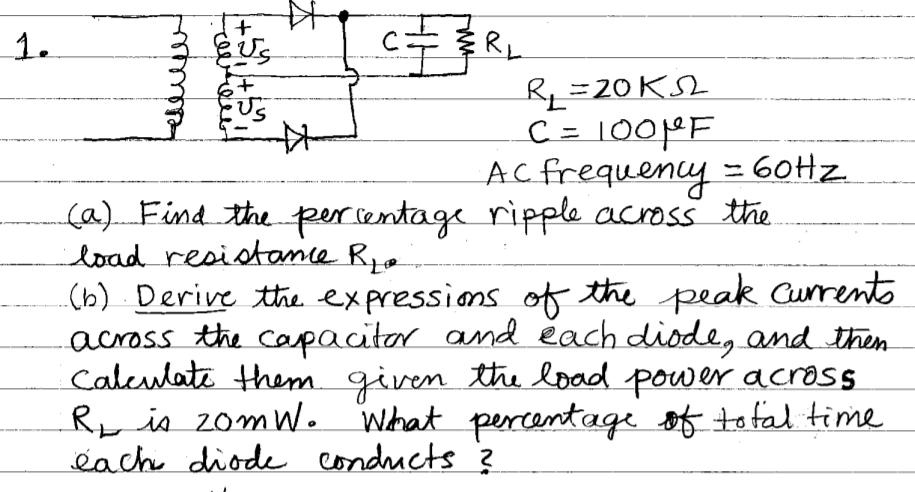 1.
+
υs
-
+
υs
-
C
R_L
R_L = 20KΩ
C = 100μF
AC frequency = 60Hz
(a) Find the percentage ripple across the
load resistance R_L.
(b) Derive the expressions of the peak currents
across the capacitor and each diode, and then
calculate them given the load power across
R_L is 20mW. What percentage of total time
each diode conducts ?